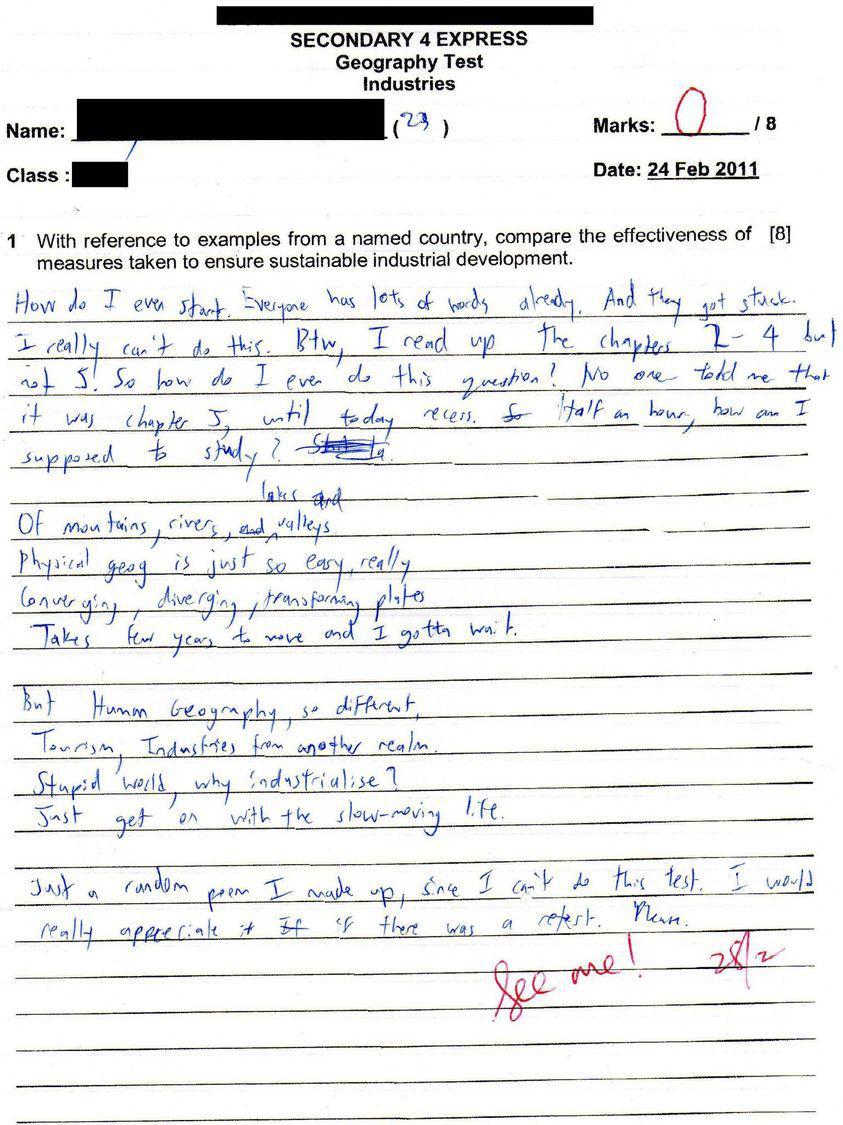 SECONDARY 4 EXPRESS
Geography Test
Industries
Name: (23)
Marks: 0 / 8
Class :
Date: 24 Feb 2011
1 With reference to examples from a named country, compare the effectiveness of [8]
measures taken to ensure sustainable industrial development.
How do I even start. Everyone has lots of words already. And they got stuck.
I really can't do this. Btw, I read up the chapters 2-4 but
not 5! So how do I ever do this question? No one told me that
it was chapter 5, until today recess. Half an hour, how am I
supposed to study?
lakes and
Of mountains, rivers, and valleys
Physical geog is just so easy, really
Converging, diverging, transforming plates
Takes few years to move and I gotta wait.
But Human Geography, so different,
Tourism, Industries from another realm.
Stupid world, why industrialise?
Just get on with the slow-moving life.
Just a random poem I made up, since I can't do this test. I would
really appreciate it if there was a retest.
See me! 28/2